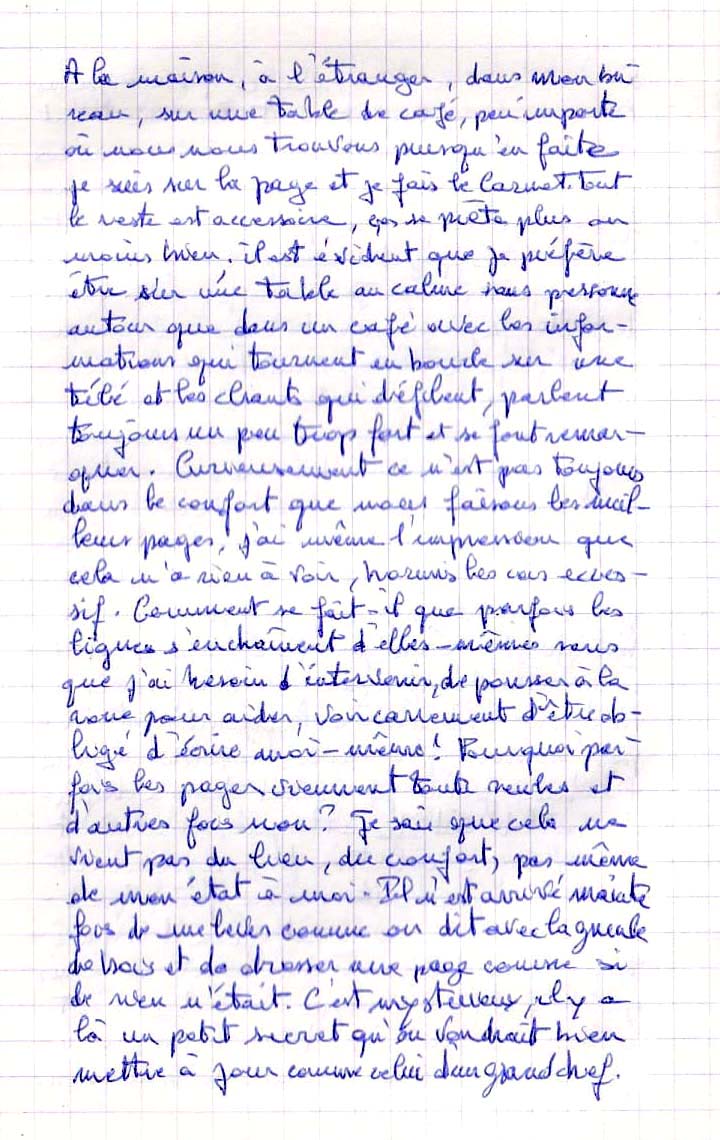 A la maison, à l'étranger, dans mon bu-
reau, sur une table de café, peu importe
où nous nous trouvons puisqu'en faite
je suis sur la page et je fais le Carnet. Tout
le reste est accessoire, ças se prête plus ou
moins bien. il est évident que je préfère
être sur une table au calme sans personne
autour que dans un café avec les infor-
mations qui tournent en boucle sur une
télé et les clients qui défilent, parlent
toujours un peu trop fort et se font remar-
quer. Curieusement ce n'est pas toujours
dans le confort que nous faisons les meil-
leurs pages, j'ai même l'impression que
cela n'a rien à voir, hormis les cas exces-
sif. Comment se fait-il que parfois les
lignes s'enchaînent d'elles-mêmes sans
que j'ai besoin d'intervenir, de pousser à la
roue pour aider, voir carrement d'être ob-
ligé d'écrire moi-même! Pourquoi par-
fois les pages viennent toute seules et
d'autres fois non? Je sais que cela ne
vient pas du lieu, du confort, pas même
de mon état à moi. Il m'est arrivé mainte
fois de me lever comme on dit avec la gueule
de bois et de dresser une page comme si
de rien n'était. C'est mystérieux, il y a
là un petit secret qu'on voudrait bien
mettre à jour comme celui d'un grand chef.